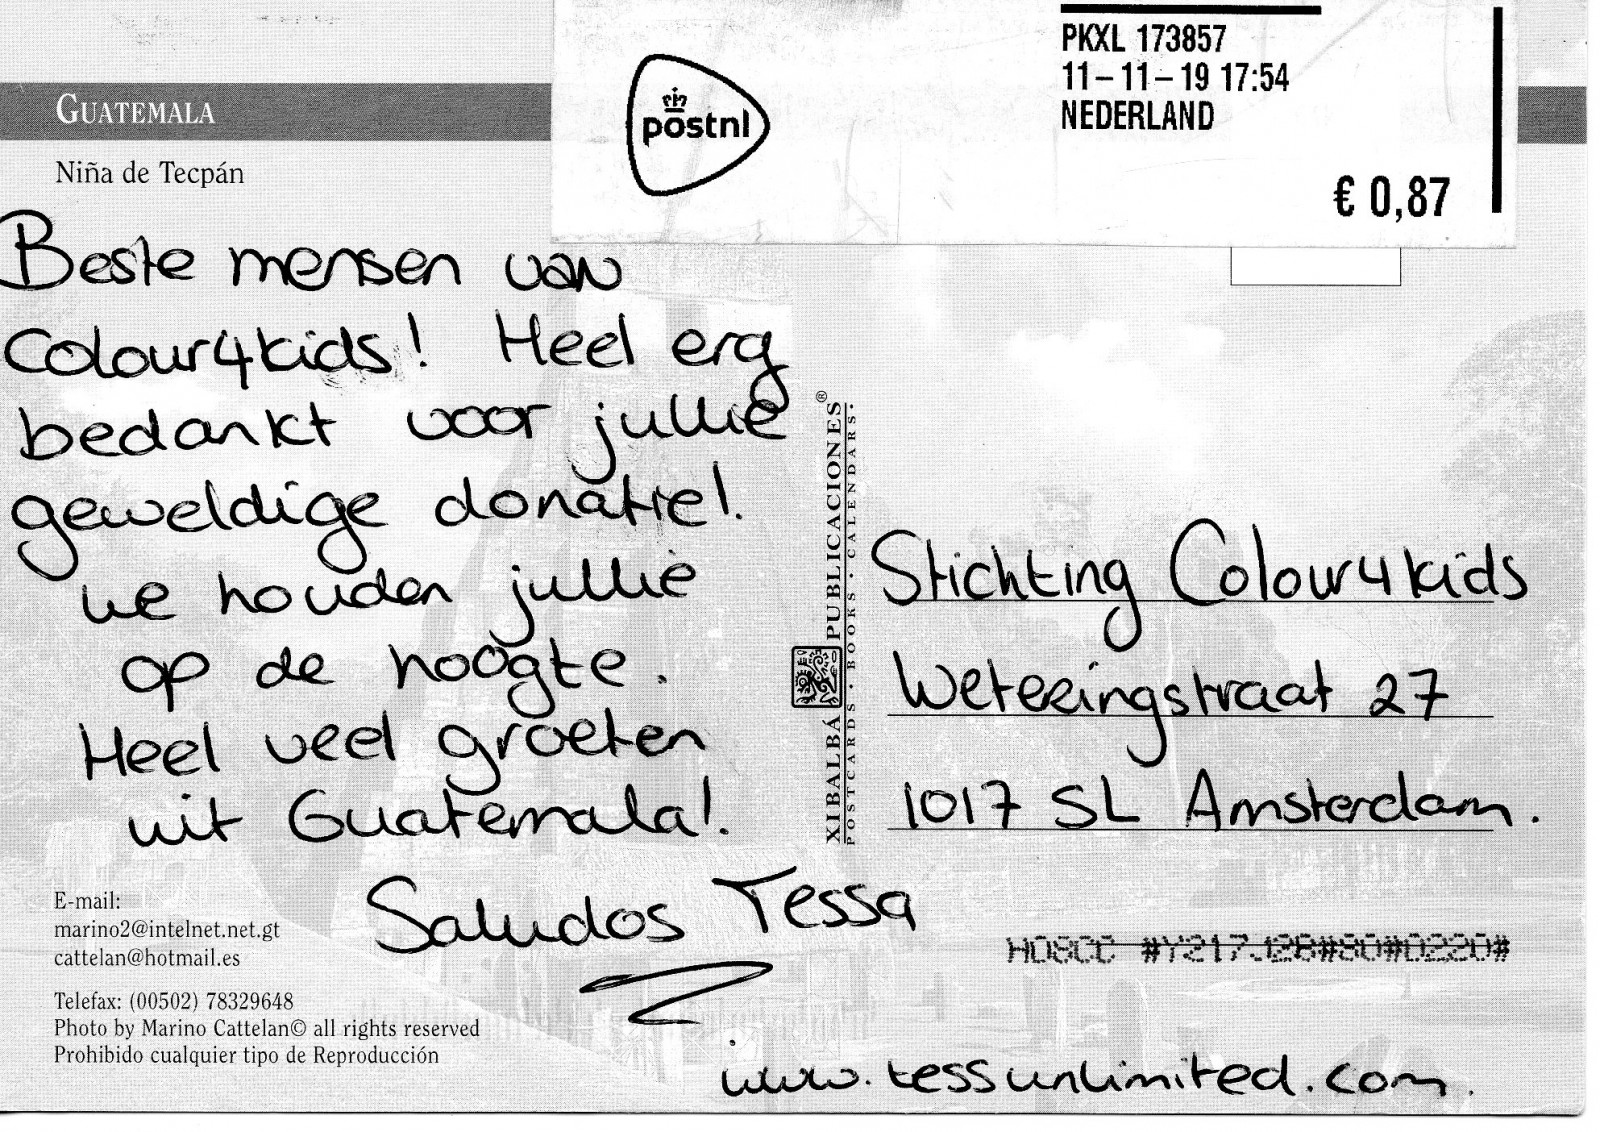 GUATEMALA
Niña de Tecpán
postnl
PKXL 173857
11-11-19 17:54
NEDERLAND
€ 0,87
Beste mensen van
Colour4kids! Heel erg
bedankt voor jullie
geweldige donatie!.
we houden jullie
op de hoogte.
Heel veel groeten
uit Guatemala!.
Saludos Tessa
www.tessunlimited.com.
XIBALBÁ PUBLICACIONES®
POSTCARDS · BOOKS · CALENDARS·
Stichting Colour4kids
Weteringstraat 27
1017 SL Amsterdam.
E-mail:
marino2@intelnet.net.gt
cattelan@hotmail.es
Telefax: (00502) 78329648
Photo by Marino Cattelan© all rights reserved
Prohibido cualquier tipo de Reproducción